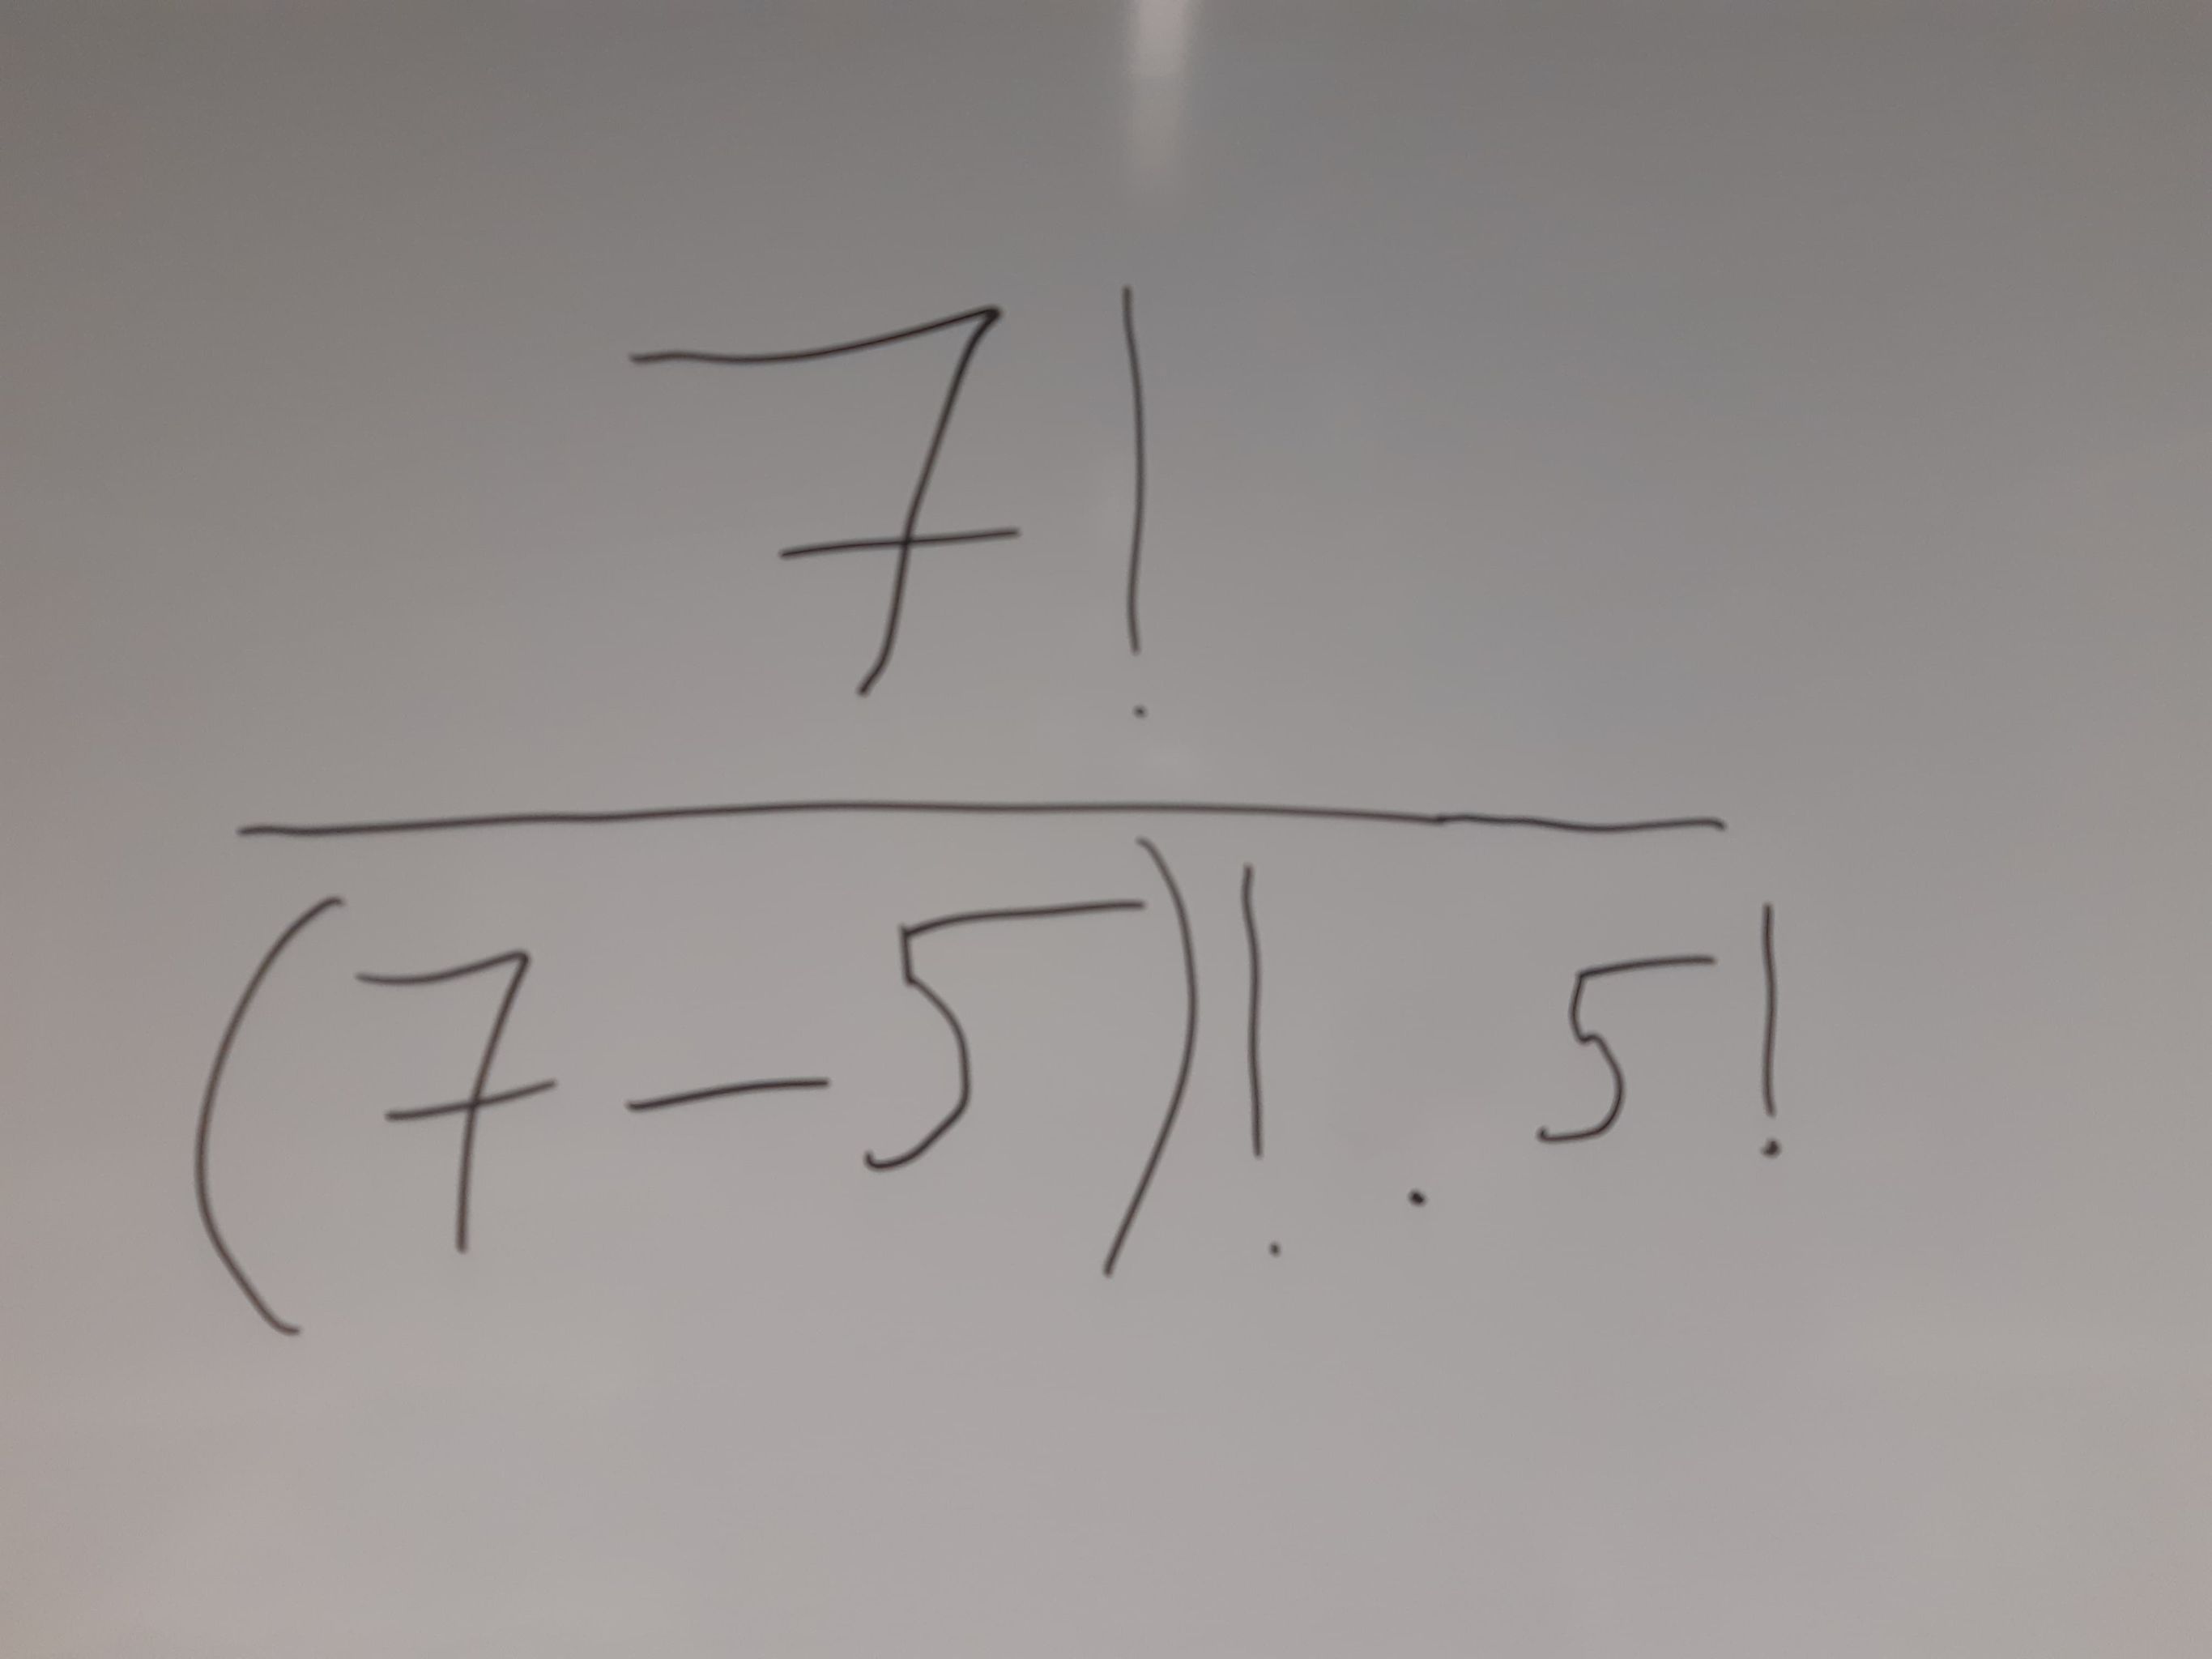 7!
(7-5)! . 5!